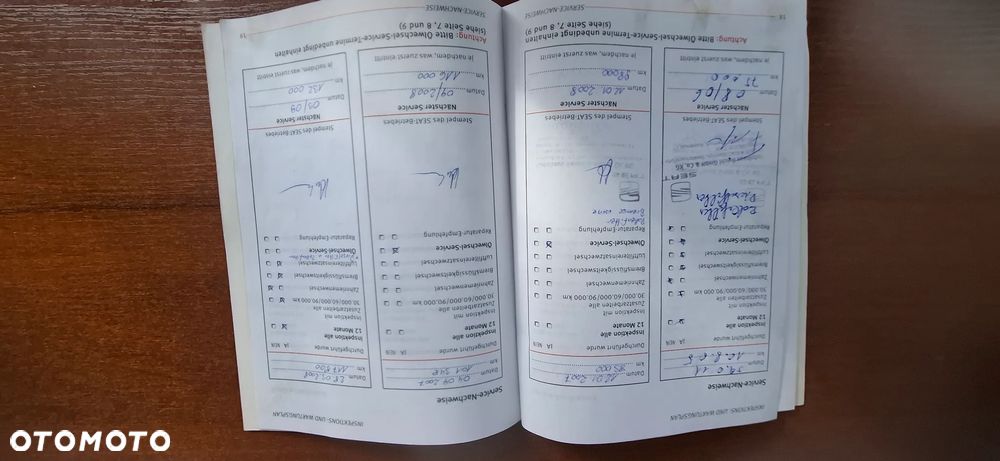 INSPEKTIONS- UND WARTUNGSPLAN
Service-Nachweise
Datum
km
Durchgeführt wurde JA NEIN
Inspektion alle
12 Monate
Inspektion mit
Zusatzarbeiten alle
30.000/60.000/90.000 km
Zahnriemenwechsel
Bremsflüssigkeitswechsel
Luftfilterersatzwechsel
Ölwechsel-Service
Reparatur-Empfehlung
SEAT
Stempel des SEAT-Betriebes
Nächster Service
Datum 08/06
km 75 000
je nachdem, was zuerst eintritt
Achtung: Bitte Ölwechsel-Service-Termine unbedingt einhalten
(siehe Seite 7, 8 und 9)
18
Datum 12.01.2007
km 85000
Durchgeführt wurde JA NEIN
Inspektion alle
12 Monate
Inspektion mit
Zusatzarbeiten alle
30.000/60.000/90.000 km
Zahnriemenwechsel
Bremsflüssigkeitswechsel
Luftfilterersatzwechsel
Ölwechsel-Service
Reparatur-Empfehlung
Stempel des SEAT-Betriebes
Nächster Service
Datum 12.01.2008
km 99000
je nachdem, was zuerst eintritt
SERVICE-NACHWEISE
INSPEKTIONS- UND WARTUNGSPLAN
Service-Nachweise
Datum 04.09.2007
km
Durchgeführt wurde JA NEIN
Inspektion alle
12 Monate
Inspektion mit
Zusatzarbeiten alle
30.000/60.000/90.000 km
Zahnriemenwechsel
Bremsflüssigkeitswechsel
Luftfilterersatzwechsel
Ölwechsel-Service
Reparatur-Empfehlung
Stempel des SEAT-Betriebes
Nächster Service
Datum 09/2008
km 116 000
je nachdem, was zuerst eintritt
Achtung: Bitte Ölwechsel-Service-Termine unbedingt einhalten
(siehe Seite 7, 8 und 9)
Datum
km 117 500
Durchgeführt wurde JA NEIN
Inspektion alle
12 Monate
Inspektion mit
Zusatzarbeiten alle
30.000/60.000/90.000 km
Zahnriemenwechsel
Bremsflüssigkeitswechsel
Luftfilterersatzwechsel
Ölwechsel-Service
Reparatur-Empfehlung
Stempel des SEAT-Betriebes
Nächster Service
Datum 05/09
km 132 000
je nachdem, was zuerst eintritt
SERVICE-NACHWEISE
19
OTOMOTO